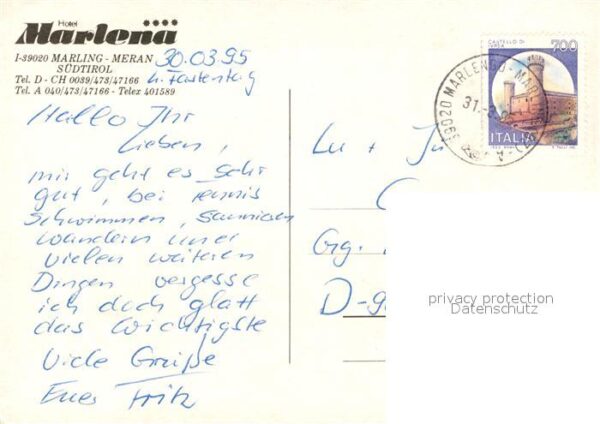 Hotel
Marlena
I-39020 MARLING - MERAN
SÜDTIROL
Tel. D - CH 0039/473/47166
Tel. A 040/473/47166 - Telex 401589
30.03.95
Hallo Ihr
Lieben,
mir geht es sehr
gut, bei Tennis
schwimmen, saunieren
wandern und
vielen weiteren
Dingen vergesse
ich doch glatt
das wichtigste
Viele Grüße
Euer Fritz
CASTELLO DI
IVREA
700
ITALIA
39020 MARLENGO - MARLING
31.
Lu + Ju
Grg.
D-9
privacy protection
Datenschutz